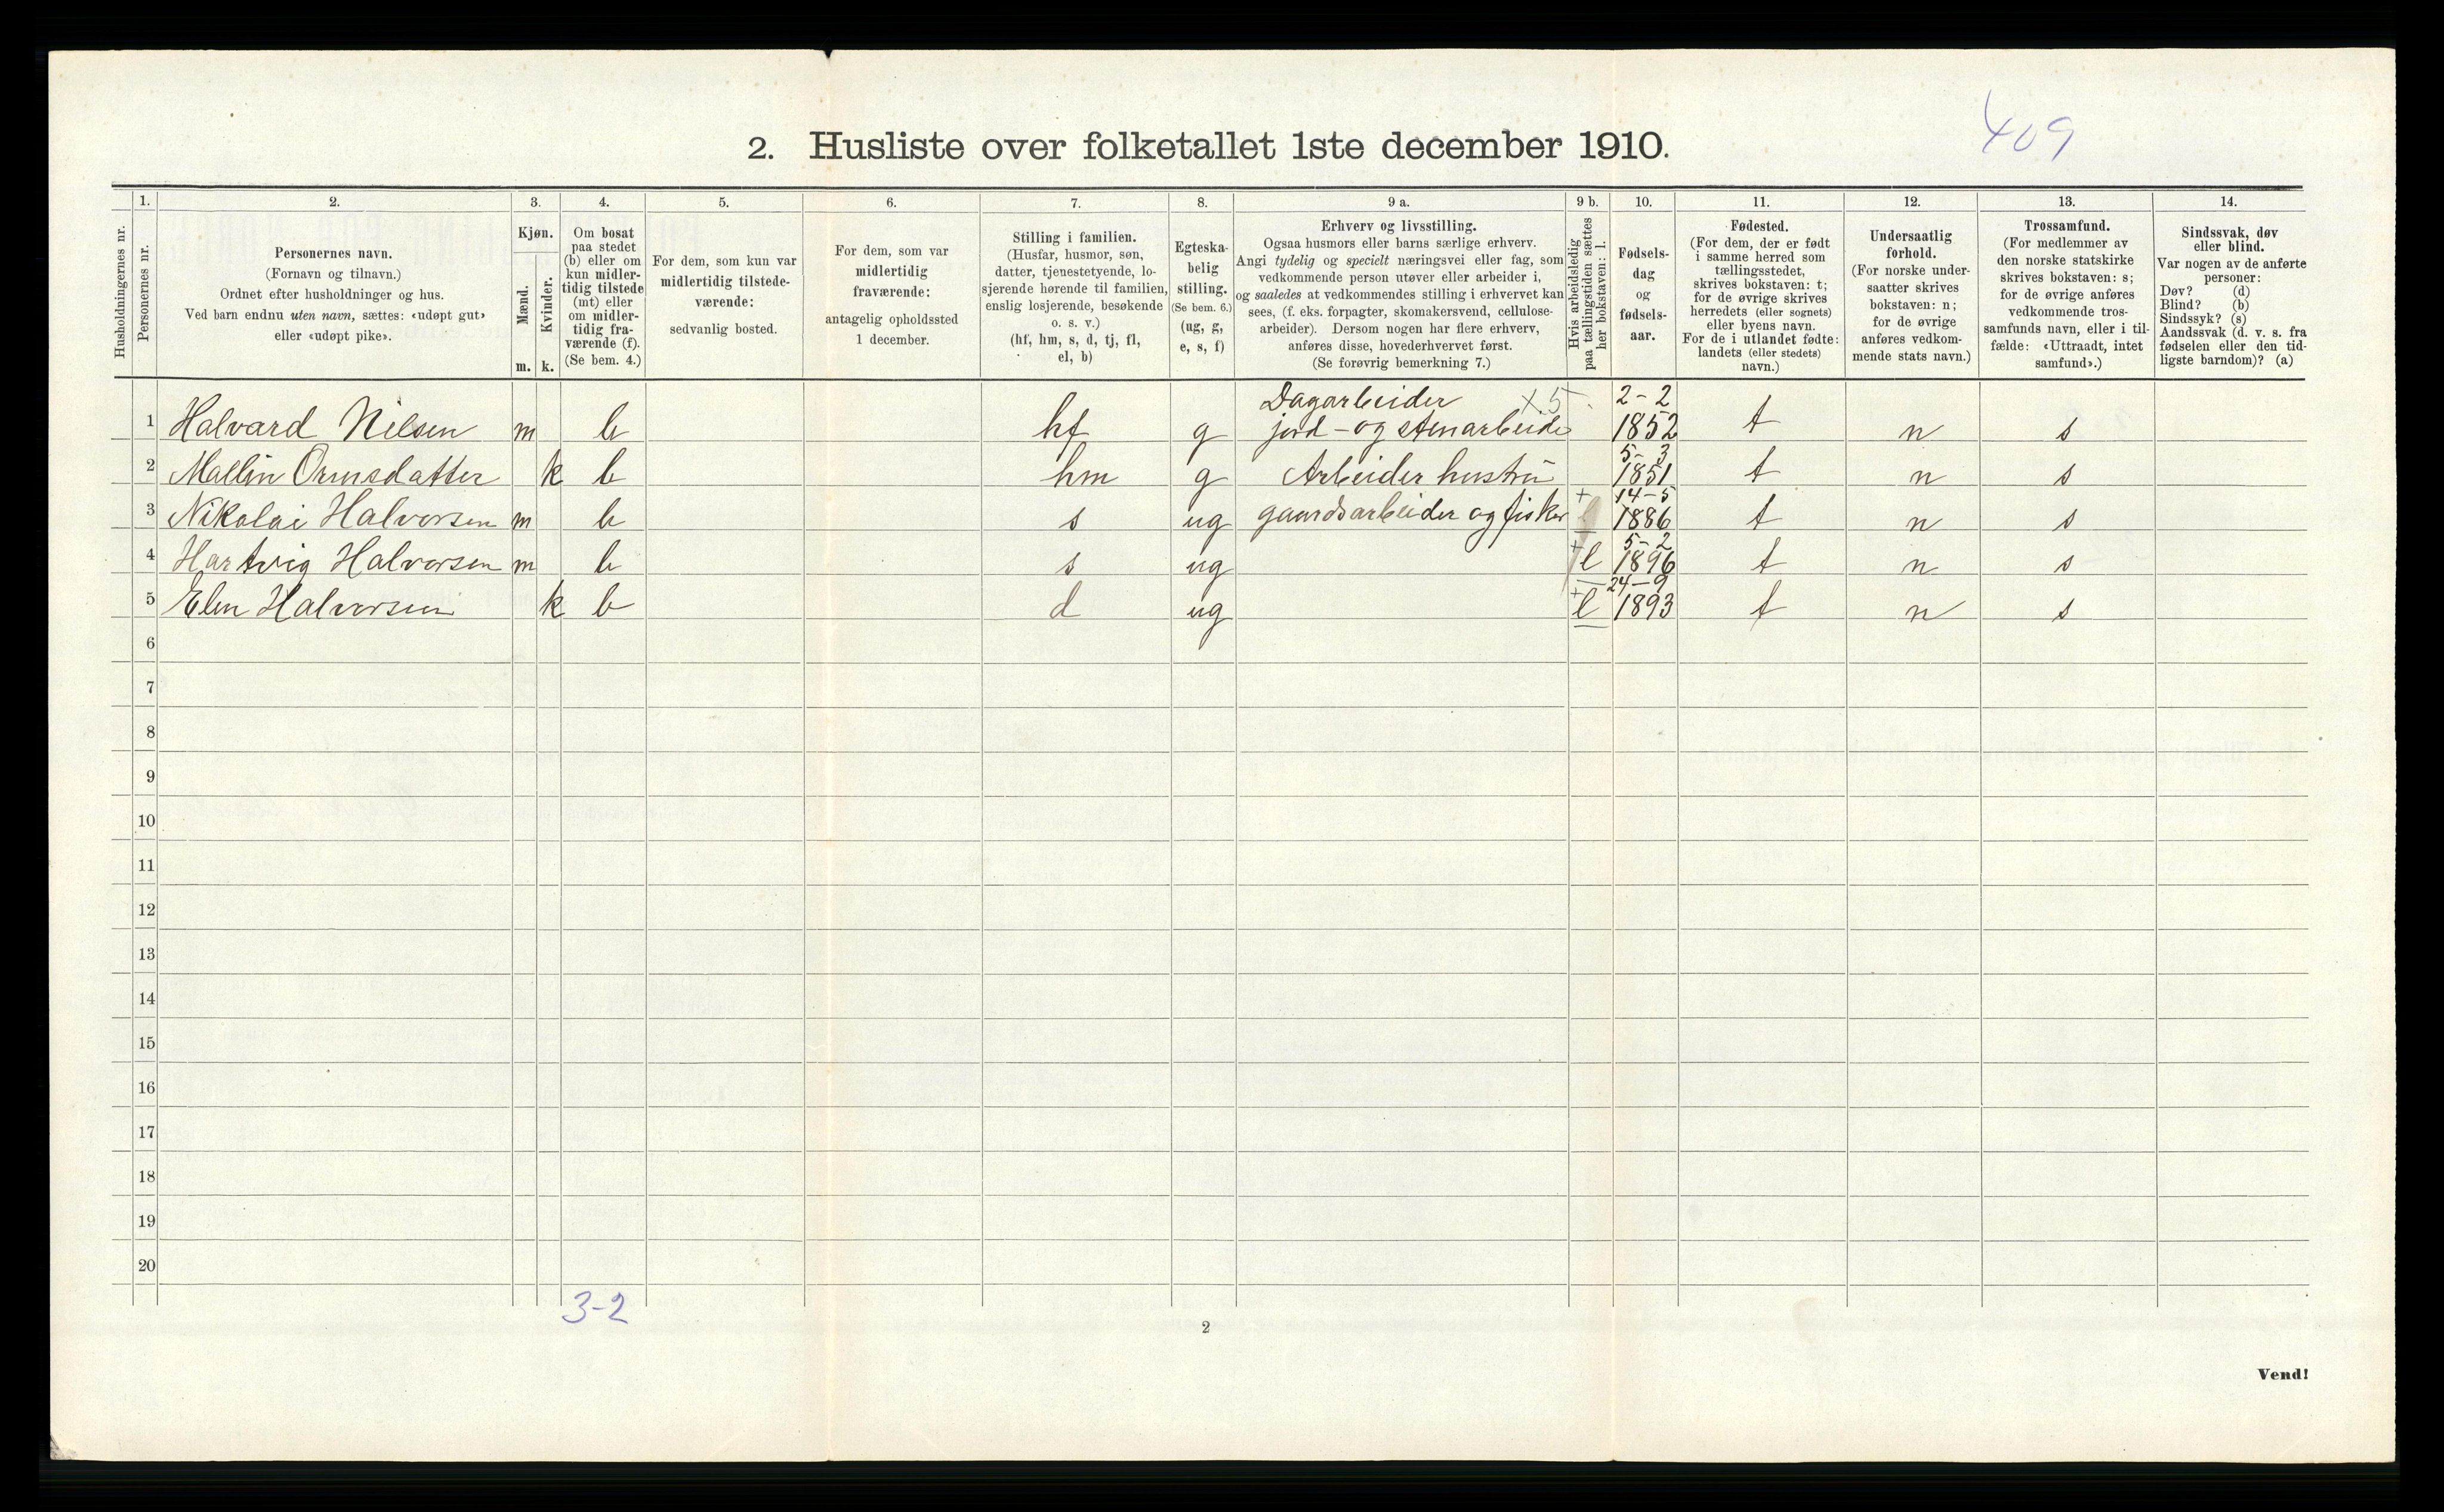 409
2. Husliste over folketallet 1ste december 1910.
Husholdningernes nr.
1.
Personernes nr.
2.
Personernes navn.
(Fornavn og tilnavn.)
Ordnet efter husholdninger og hus.
Ved barn endnu uten navn, sættes: «udøpt gut»
eller «udøpt pike».
3.
Kjøn.
Mænd.
Kvinder.
m. k.
4.
Om bosat
paa stedet
(b) eller om
kun midler-
tidig tilstede
(mt) eller
om midler-
tidig fra-
værende (f).
(Se bem. 4.)
5.
For dem, som kun var
midlertidig tilstede-
værende:
sedvanlig bosted.
6.
For dem, som var
midlertidig
fraværende:
antagelig opholdssted
1 december.
7.
Stilling i familien.
(Husfar, husmor, søn,
datter, tjenestetyende, lo-
sjerende hørende til familien,
enslig losjerende, besøkende
o. s. v.)
(hf, hm, s, d, tj, fl,
el, b)
8.
Egteska-
belig
stilling.
(Se bem. 6.)
(ug, g,
e, s, f)
9 a.
Erhverv og livsstilling.
Ogsaa husmors eller barns særlige erhverv.
Angi tydelig og specielt næringsvei eller fag, som
vedkommende person utøver eller arbeider i,
og saaledes at vedkommendes stilling i erhvervet kan
sees, (f. eks. forpagter, skomakersvend, cellulose-
arbeider). Dersom nogen har flere erhverv,
anføres disse, hovederhvervet først.
(Se forøvrig bemerkning 7.)
9 b.
Hvis arbeidsledig
paa tællingstiden sættes
her bokstaven: l.
10.
Fødsels-
dag
og
fødsels-
aar.
11.
Fødested.
(For dem, der er født
i samme herred som
tællingsstedet,
skrives bokstaven: t;
for de øvrige skrives
herredets (eller sognets)
eller byens navn.
For de i utlandet fødte:
landets (eller stedets)
navn.)
12.
Undersaatlig
forhold.
(For norske under-
saatter skrives
bokstaven: n;
for de øvrige
anføres vedkom-
mende stats navn.)
13.
Trossamfund.
(For medlemmer av
den norske statskirke
skrives bokstaven: s;
for de øvrige anføres
vedkommende tros-
samfunds navn, eller i til-
fælde: «Uttraadt, intet
samfund».)
14.
Sindssvak, døv
eller blind.
Var nogen av de anførte
personer:
Døv? (d)
Blind? (b)
Sindssyk? (s)
Aandssvak (d. v. s. fra
fødselen eller den tid-
ligste barndom)? (a)
Dagarbeider X5 2-2
1 Halvard Nilsen m b hf g jord-og stenarbeide 1852 t n s
5-3
2 Mallin Ormsdatter k b hm g Arbeider hustru 1851 t n s
+ 14-5
3 Nikolai Halvorsen m b s ug gaardsarbeider og fisker l 1886 t n s
+ 5-2
4 Hartvig Halvorsen m b s ug l 1896 t n s
+ 24-9
5 Elen Halvorsen k b d ug l 1893 t n s
6
7
8
9
10
11
12
13
14
15
16
17
18
19
20
3-2
2
Vend!